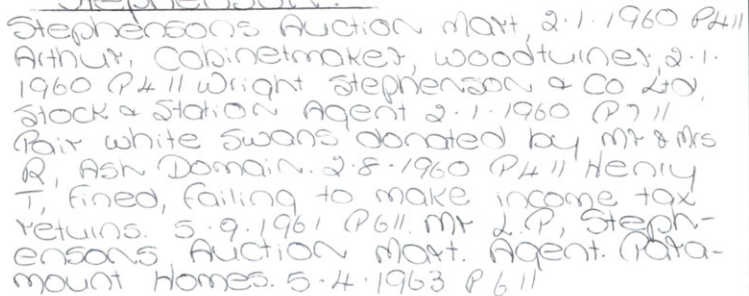 Stephenson.
Stephensons Auction Mart, 2.1.1960 P4||
Arthur, Cabinetmaker, woodturner, 2.1.
1960 P4|| Wright Stephenson & Co Ltd,
Stock & Station Agent 2.1.1960 P7||
Pair white swans donated by Mr & Mrs
R, Ash Domain. 2.8.1960 P4|| Henry
T, fined, failing to make income tax
returns. 5.9.1961 P6||. Mr L.P, Steph-
ensons Auction Mart. Agent. Para-
mount Homes. 5.4.1963 P6||